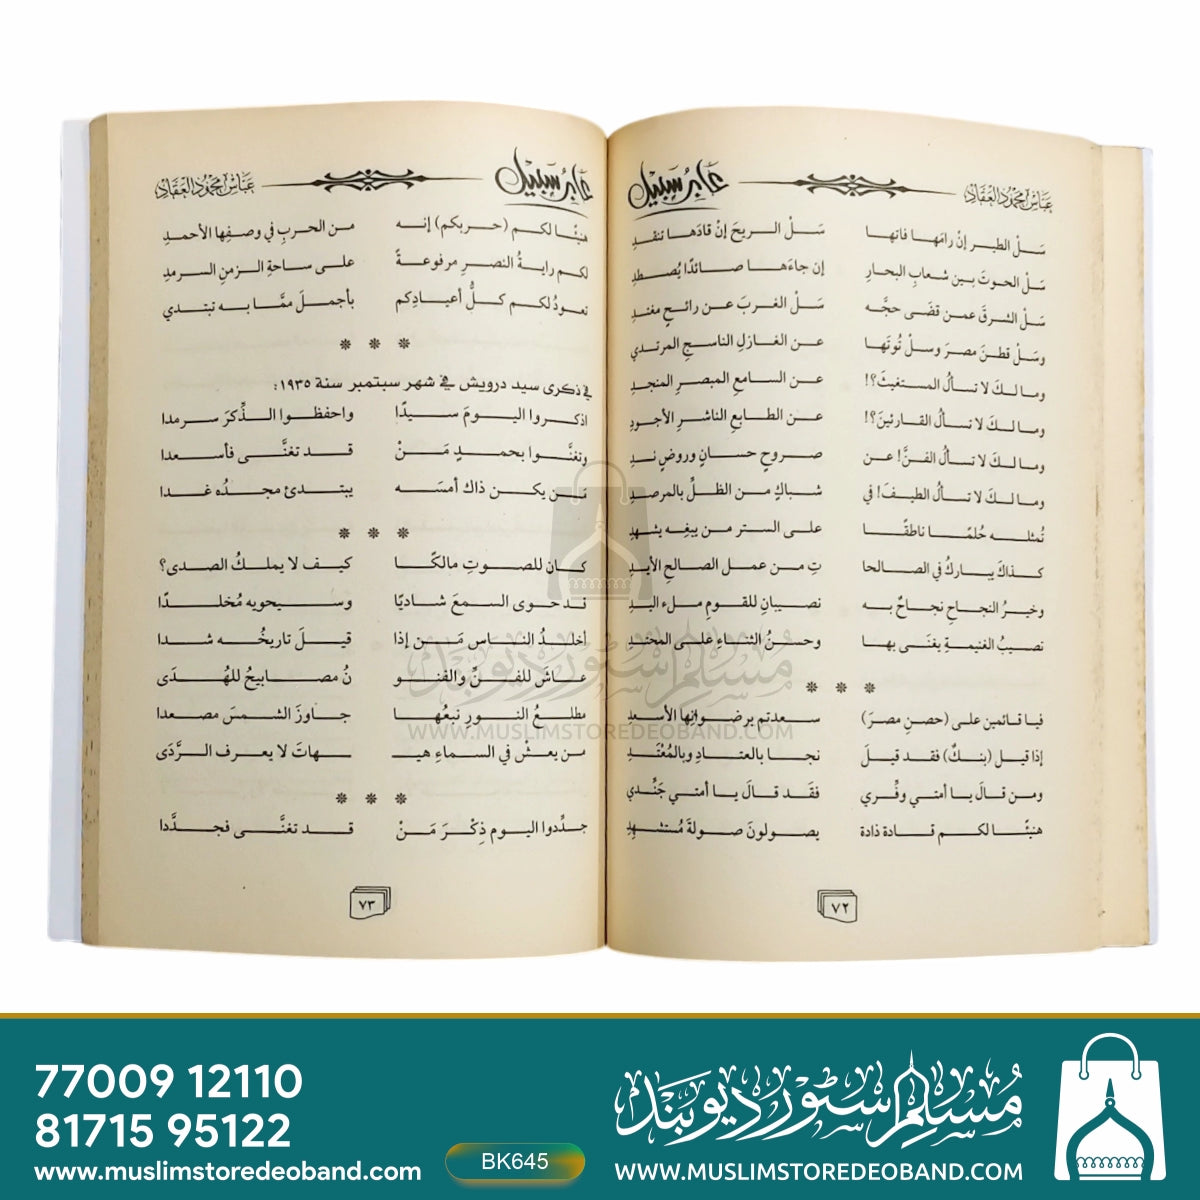 عباس محمود العقاد
عابر سبيل
سَلْ الطير إنْ رامَها فاتها سَلْ الريحَ إنْ قادَها تنقدِ
سَل الحوتَ بين شعابِ البحارِ إن جاءَها صائدًا يُصطدِ
سَلْ الشرقَ عمن قضَى حجَّه سَلْ الغربَ عن رائحٍ مغتدِ
وسَلْ قطنَ مصرَ وسلْ نُوتَها عن الغازلِ الناسجِ المرتدي
وما لكَ لا تسألُ المستغيثَ؟! عن السامعِ المبصرِ المنجدِ
وما لكَ لا تسألُ القارئينَ؟! عن الطابعِ الناشرِ الأجودِ
وما لكَ لا تسألُ الفنَّ! عن صروحٍ حسانٍ وروضٍ ندِ
وما لكَ لا تسألُ الطيفَ! في شباكٍ من الظلِّ بالمرصدِ
تُمثله حُلمًا ناطقًا على الستر من يبغِه يشهدِ
كذاكَ يباركُ في الصالحا تِ من عمل الصالحِ الأيدِ
وخيرُ النجاحِ نجاحٌ به نصيبانِ للقومِ ملء اليدِ
نصيبُ الغنيمةِ يغنَى بها وحسنُ الثناءِ على المحتدِ
* * *
فيا قائمين على (حصنِ مصرَ) سعدتم برضوانِها الأسعدِ
إذا قيل (بنكٌ) فقد قيلَ نجا بالعتادِ وبالمُعْتَدِ
ومن قالَ يا أمتي وفِّري فقَد قالَ يا أمتي جَنِّدي
هنيئًا لكم قادة ذادة يصولونَ صولةَ مُستشهِدِ
٧٢
عابر سبيل
عباس محمود العقاد
هنيئًا لكم (حربكم) إنه من الحربِ في وصفِها الأحمدِ
لكم رايةُ النصرِ مرفوعةً على ساحةِ الزمنِ السرمدِ
تعودُ لكم كلُّ أعيادِكم بأجملَ ممَّا به تبتدي
* * *
في ذكرى سيد درويش في شهر سبتمبر سنة ١٩٣٥:
اذكروا اليومَ سيدًا واحفظوا الذِّكرَ سرمدا
وتغنَّوا بحمدِ مَنْ قد تغنَّى فأسعدا
من يكن ذاك أمسَه يبتدئ مجدُه غدا
* * *
كان للصوتِ مالكًا كيف لا يملكُ الصدى؟
قد حوى السمعَ شاديًا وسيحويه مُخلدًا
أخلدُ الناسِ مَن إذا قيلَ تاريخُه شدا
عاشَ للفنِّ والفنو نُ مصابيحُ للهُدَى
مطلعُ النورِ نبعُها جاوزَ الشمسَ مصعدا
من يعشْ في السماءِ هيـ ـهاتَ لا يعرف الرَّدَى
* * *
جدِّدوا اليوم ذِكْرَ مَنْ قد تغنَّى فجدَّدا
٧٣
مسلم سٹور دیوبند
WWW.MUSLIMSTOREDEOBAND.COM
77009 12110
81715 95122
www.muslimstoredeoband.com
BK645
مسلم سٹور دیوبند
WWW.MUSLIMSTOREDEOBAND.COM